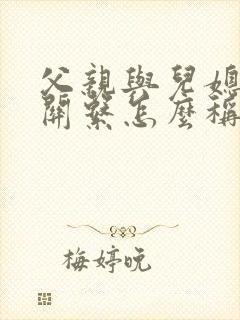 父親與兒媳
關繫怎麼稱
梅婷晚